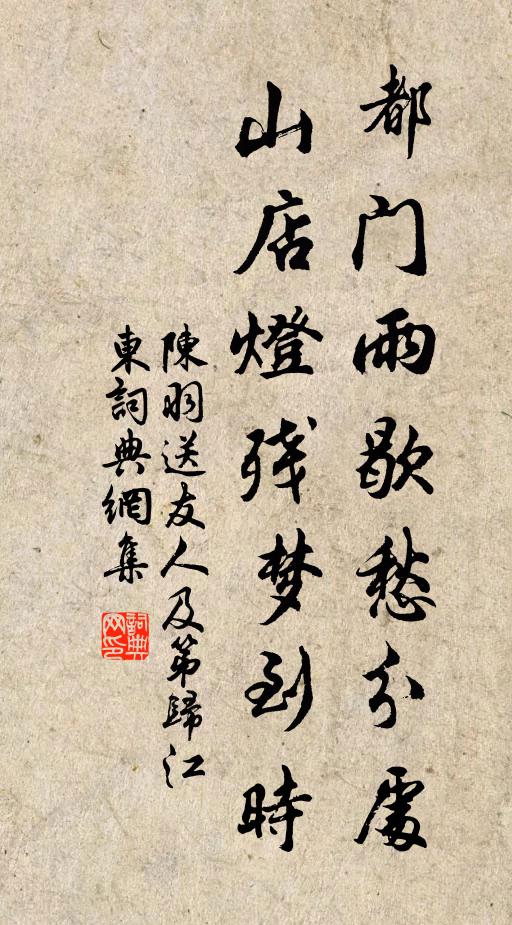 都门雨歇愁分處
山店燈残梦到時
陳羽送友人及第歸江
東詞典網集
詞典
网印